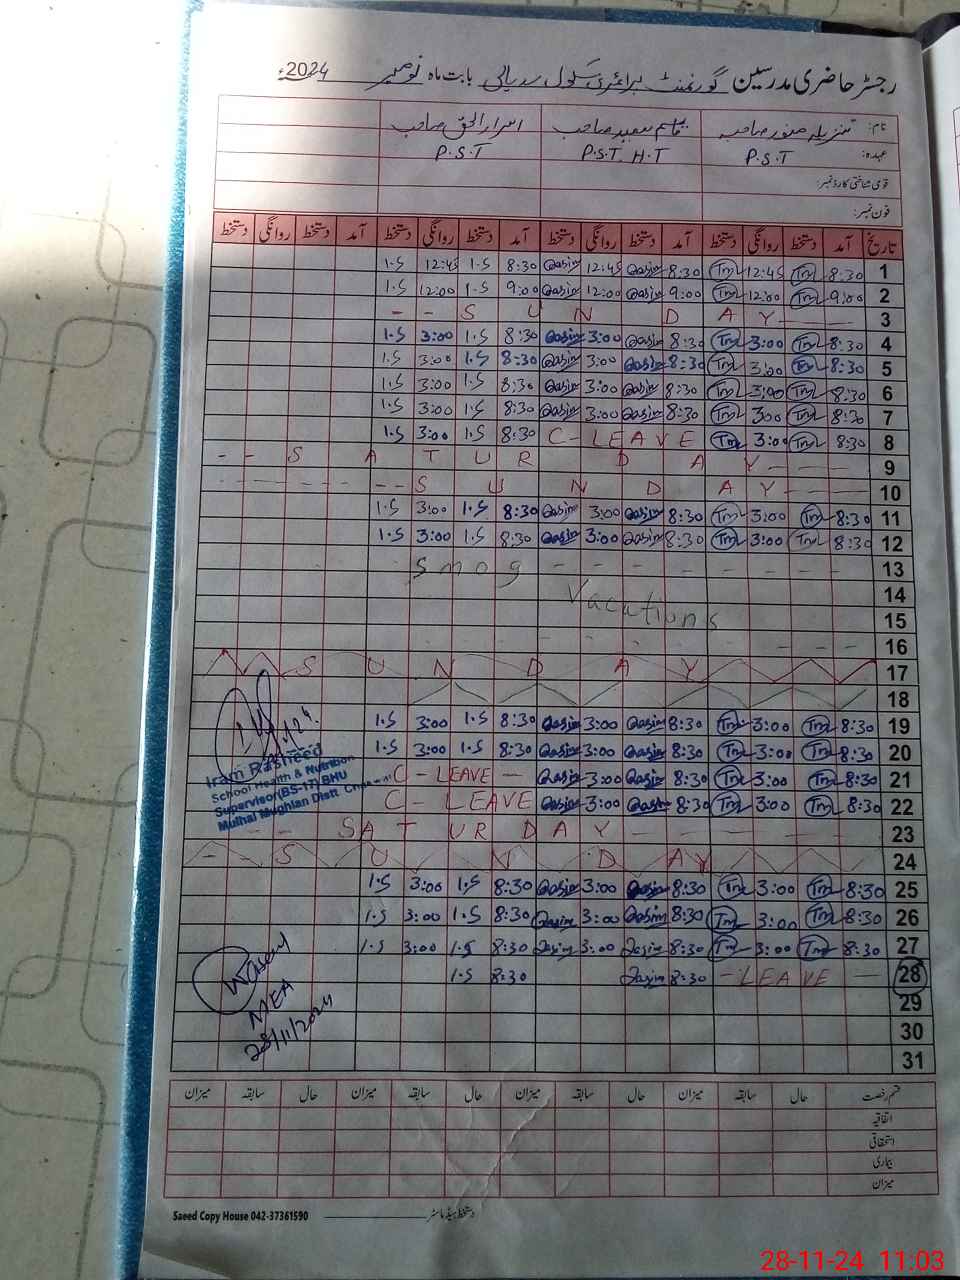 رجسٹر حاضری مدرسین گورنمنٹ پرائمری سکول سدیالی بابت ماہ نومبر 2024ء
نام: تنزیلہ منور صاحبہ قاسم سعید صاحب اسرار الحق صاحب
عہدہ: P.S.T P.S.T H.T P.S.T
قومی شناختی کارڈ نمبر:
فون نمبر:
تاریخ آمد دستخط روانگی دستخط آمد دستخط روانگی دستخط آمد دستخط روانگی دستخط آمد دستخط روانگی دستخط
1.S 12:45 1.S 8:30 Qasim 12:45 Qasim 8:30 Tm 12:45 Tm 8:30 1
1.S 12:00 1.S 9:00 Qasim 12:00 Qasim 9:00 Tm 12:00 Tm 9:00 2
-- S U N D A Y --- 3
1.S 3:00 1.S 8:30 Qasim 3:00 Qasim 8:30 Tm 3:00 Tm 8:30 4
1.S 3:00 1.S 8:30 Qasim 3:00 Qasim 8:30 Tm 3:00 Tm 8:30 5
1.S 3:00 1.S 8:30 Qasim 3:00 Qasim 8:30 Tm 3:00 Tm 8:30 6
1.S 3:00 1.S 8:30 Qasim 3:00 Qasim 8:30 Tm 3:00 Tm 8:30 7
1.S 3:00 1.S 8:30 C-LEAVE Tm 3:00 Tm 8:30 8
-- S A T U R D A Y ---- 9
------ S U N D A Y ---- 10
1.S 3:00 1.S 8:30 Qasim 3:00 Qasim 8:30 Tm 3:00 Tm 8:30 11
1.S 3:00 1.S 8:30 Qasim 3:00 Qasim 8:30 Tm 3:00 Tm 8:30 12
Smog -------- 13
Vacations 14
15
16
S U N D A Y 17
18
1.S 3:00 1.S 8:30 Qasim 3:00 Qasim 8:30 Tm 3:00 Tm 8:30 19
1.S 3:00 1.S 8:30 Qasim 3:00 Qasim 8:30 Tm 3:00 Tm 8:30 20
C-LEAVE - Qasim 3:00 Qasim 8:30 Tm 3:00 Tm 8:30 21
C-LEAVE Qasim 3:00 Qasim 8:30 Tm 3:00 Tm 8:30 22
Iram Rasheed
School Health & Nutrition
Supervisor(BS-17) BHU
Mulhal Mughlan Distt.
-- SATURDAY ----- 23
-- S U N D A Y 24
1.S 3:00 1.S 8:30 Qasim 3:00 Qasim 8:30 Tm 3:00 Tm 8:30 25
1.S 3:00 1.S 8:30 Qasim 3:00 Qasim 8:30 Tm 3:00 Tm 8:30 26
1.S 3:00 1.S 8:30 Qasim 3:00 Qasim 8:30 Tm 3:00 Tm 8:30 27
1.S 8:30 Qasim 8:30 - LEAVE - 28
MEA
28/11/2024
29
30
31
قسم رخصت حال سابقہ میزان حال سابقہ میزان حال سابقہ میزان حال سابقہ میزان
اتفاقیہ
استحقاقی
بیماری
میزان
دستخط ہیڈ ماسٹر
Saeed Copy House 042-37361590
28-11-24 11:03